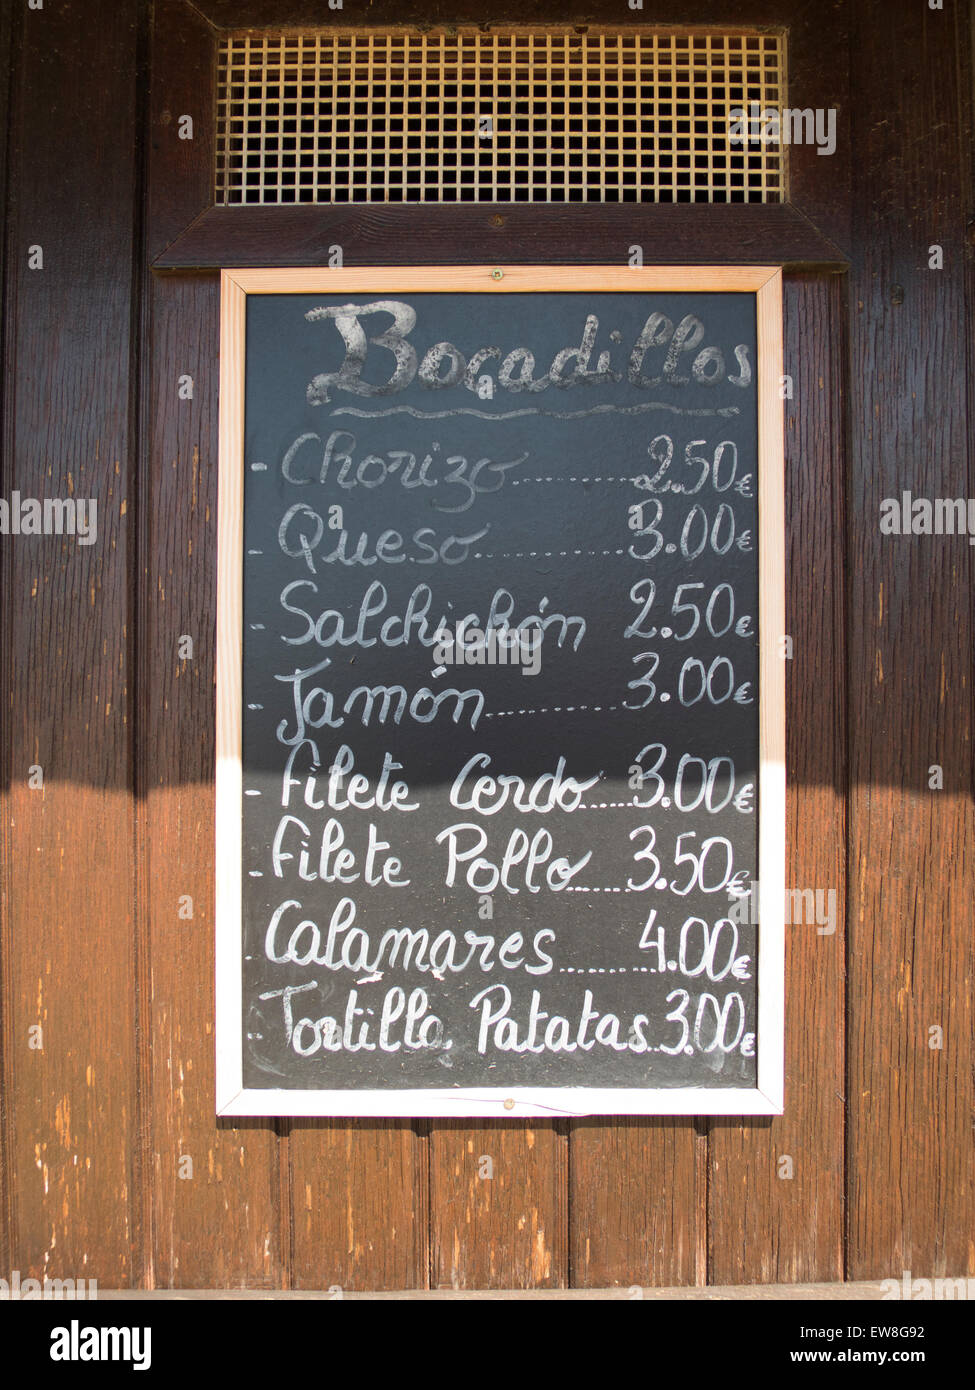 Bocadillos
- Chorizo........ 2.50€
- Queso........ 3.00€
- Salchichón 2.50€
- Jamón........ 3.00€
- Filete Cerdo..... 3.00€
- Filete Pollo..... 3.50€
- Calamares..... 4.00€
- Tortilla Patatas.. 3.00€
a alamy stock photo
EW8G92
www.alamy.com